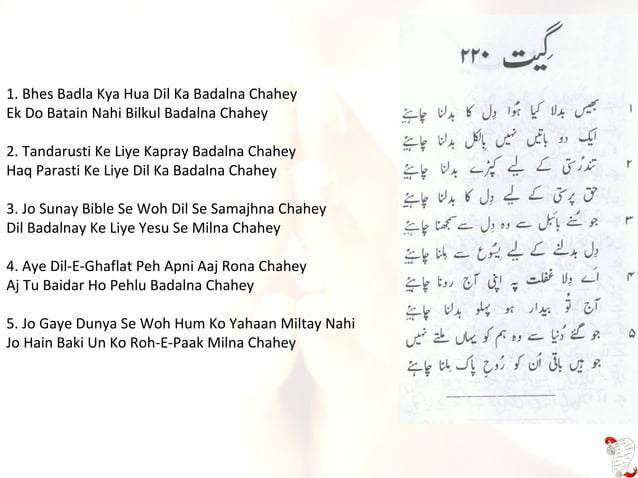 1. Bhes Badla Kya Hua Dil Ka Badalna Chahey
Ek Do Batain Nahi Bilkul Badalna Chahey
2. Tandarusti Ke Liye Kapray Badalna Chahey
Haq Parasti Ke Liye Dil Ka Badalna Chahey
3. Jo Sunay Bible Se Woh Dil Se Samajhna Chahey
Dil Badalnay Ke Liye Yesu Se Milna Chahey
4. Aye Dil-E-Ghaflat Peh Apni Aaj Rona Chahey
Aj Tu Baidar Ho Pehlu Badalna Chahey
5. Jo Gaye Dunya Se Woh Hum Ko Yahaan Miltay Nahi
Jo Hain Baki Un Ko Roh-E-Paak Milna Chahey
گیت ۲۲۰
۱ بھیس بدلا کیا ہُوا دِل کا بدلنا چاہئے
ایک دو باتیں نہیں بالکل بدلنا چاہئے
۲ تندرُستی کے لیے کپڑے بدلنا چاہئے
حق پرستی کے لیے دِل کا بدلنا چاہئے
۳ جو سُنے بائبل سے وہ دِل سے سمجھنا چاہئے
دِل بدلنے کے لیے یسُوع سے مِلنا چاہئے
۴ اَے دِلا غفلت پہ اپنی آج رونا چاہئے
آج تُو بیدار ہو پہلو بدلنا چاہئے
۵ جو گئے دُنیا سے وہ ہم کو یہاں ملتے نہیں
جو ہیں باقی اُن کو رُوحِ پاک مِلنا چاہئے